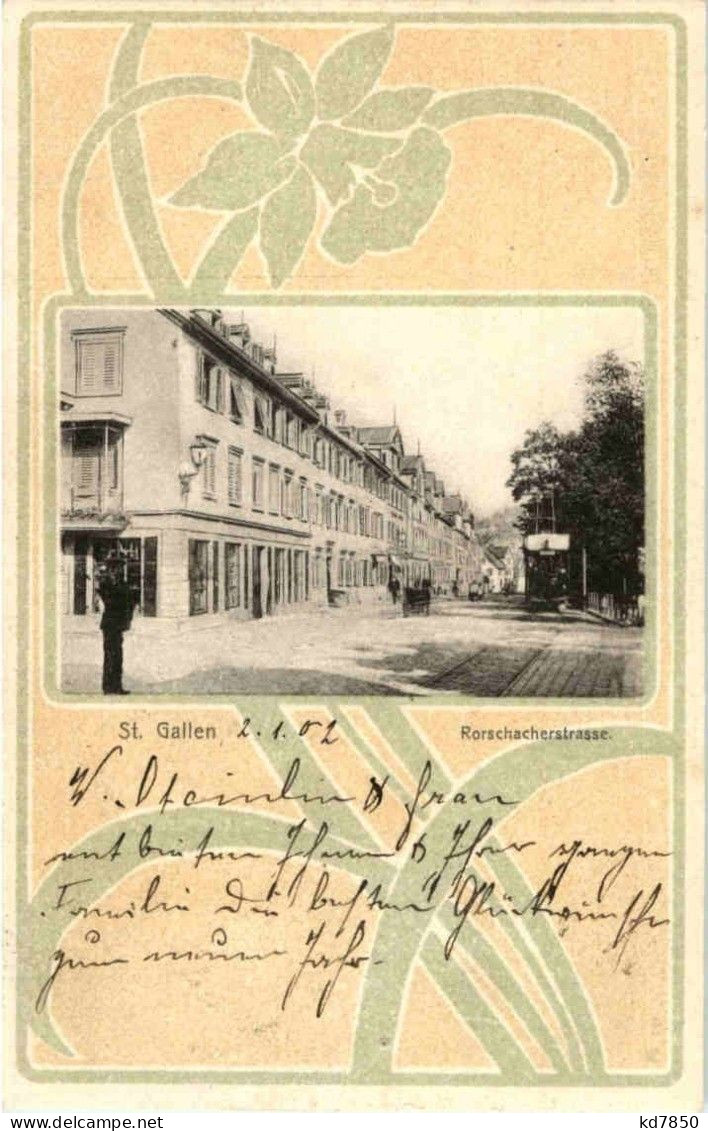 St. Gallen 2.1.02 Rorschacherstrasse.
W. Steinlin & Frau
entbieten Ihnen & Ihrer ganzen
Familie die besten Glückwünsche
zum neuen Jahr.
kd7850